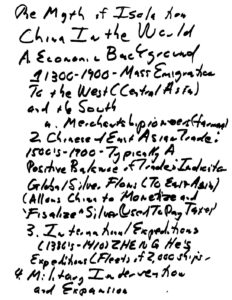 The Myth of Isolation
China In the World
A Economic Background
1 1300-1900 - Mass Emigration
To the West (Central Asia)
and the South
a. Merchants, pioneers (farmers)
2. Chinese and East Asian Trade:
1500's-1900 - Typically A
Positive Balance of Trade: Indicator
Global Silver Flows (To East Asia)
(Allows China to Monetize and
"Fiscalize" Silver (Used To Pay Taxes)
3. International Expeditions
(1380's-1410) ZHENG He's
Expeditions (Fleets of 2,000 ships.
4. Military Intervention
and Expansion